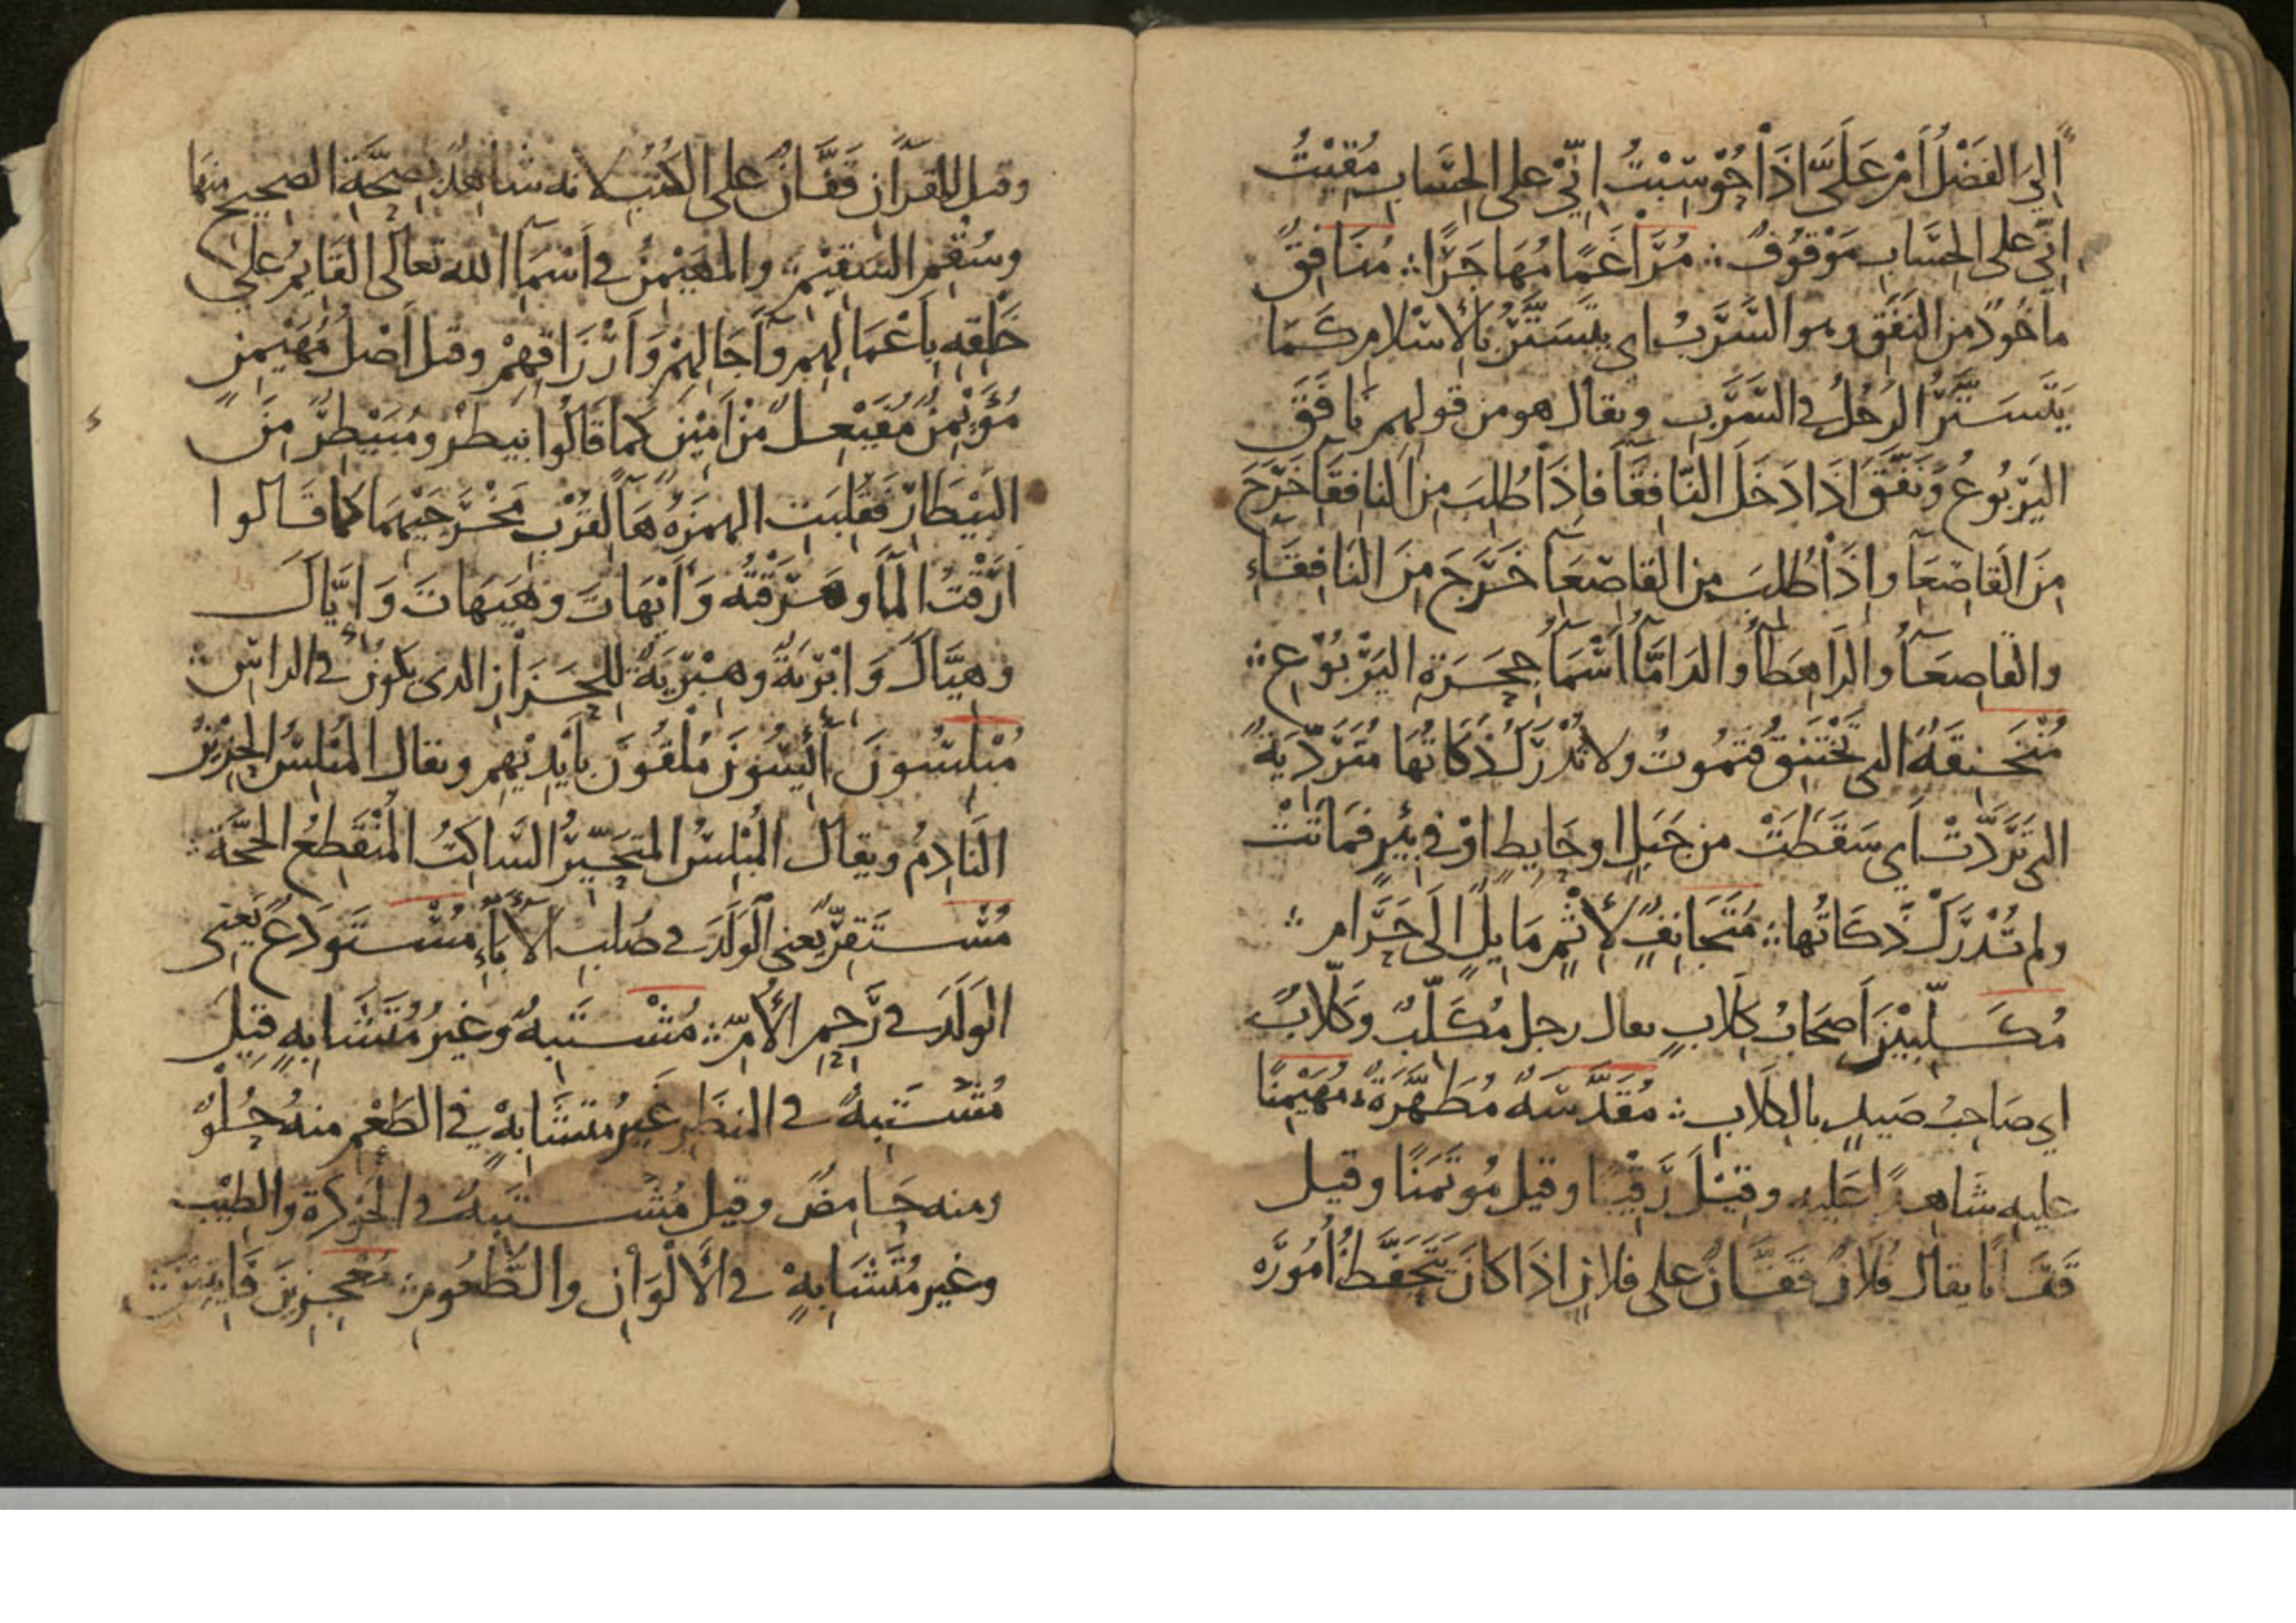 إِلَيَّ الفَضْلُ أَمْ عَلَيَّ إِذَا حُوْسِبْتُ إِنِّيْ على الحِسَابِ مُقِيْتُ
إِنِّي على الحِسَابِ مَوْقُوْفٌ ۞ مُرَاغَمًا مُهَاجَرًا ۞ مُنَافِقٌ
ماخُوذٌ من النَفَقِ وهو السَّرَبُ اى يَتَسَتَّرُ بالإسْلامِ كَمَا
يَتَسَتَّرُ الرَجُلُ في السَّرَبِ ويقال هو من قولهم نَافَقَ
اليَرْبُوعُ وَنَفَّقَ اذَا دَخَلَ النّافِقَآ فاذَا طُلِبَ مِن النافِقَآ خَرَجَ
مِنَ القَاصِعَآ وإذَا طُلِبَ من القاصِعَآ خَرَجَ مِنَ النَافِقَاءِ
والقَاصِعَآُ والرَّاهِطَآُ والدَامَّآُ أَسْمَآُ جِحَرَةِ اليَرْبُوْعِ ۞
مُنْخَنِقَةٌ التي تَخْتَنِقُ فتَمُوتُ ولا تُدْرَكُ ذَكَاتُهَا مُتَرَدِّيَةٌ
التي تَرَدَّتْ اي سَقَطَتْ من جَبَلٍ او حَايِطٍ اوْ في بِئرٍ فَمَاتَتْ
ولم تُدْرَكْ ذَكَاتُها ۞ مُتَجَانِفٍ لإِثْمٍ مَايِلٍ الَى حَرَامٍ ۞
مُكَلِّبِيْنَ أَصحَابُ كِلَابٍ يقال رجل مُكَلِّبٌ وَكَلّابٌ
اي صَاحِبُ صَيدٍ بالكِلَابِ ۞ مُقَدَّسَةٌ مُطَهَّرَةٌ مُهَيْمِنًا
عليه شَاهِدًا عَليه وقِيْلَ رَقِيْبًا وقيل مُوتَمَنًا وقيل
قَفَّانًا يقال فُلَانٌ قَفَّانٌ على فلانٍ اذَا كانَ يَتَحَفَّظُ أُمُوْرَه
وقيل للقرآن قَفَّانٌ على الكُتُبِ لانه شَاهِدٌ بصِحَّةِ الصحِيحِ منها
وسُقْمِ السَقِيْمِ والمُهَيْمِنُ في أسْمَآ الله تعالى القَايِمُ على
خَلْقِهِ بِأَعْمَالِهِم وآجَالِهِمْ وَأَرْزَاقِهِمْ وقيل أَصْلُ مُهَيْمِنٍ
مُؤَيْمِنٌ مُفَيْعِلٌ مِنْ أَمِيْنٍ كما قَالُوا بَيطَرٌ ومُبَيْطِرٌ مِنَ
البَيْطَارِ فقُلِبَت الهمزةُ هَآً لقُرْبِ مَخْرَجَيْهِمَا كما قَالوا
ارَقْتُ المَآ وهَرَقْتُه وَأَيْهَاتَ وهَيْهَاتَ وَإِيَّاكَ
وهِيَّاكَ وَإِبْرِيَةٌ وهِبْرِيَةٌ للحَزَازِ الذى يكونُ في الراسِ ۞
مُبْلِسُونَ أَئِيسُوْنَ مُلْقُوْنَ بِأيْدِيْهِم ويقال المُبْلِسُ الحَزِيْنُ
النَادِمُ ويقال المُبْلِسُ المتحَيِّرُ السَّاكِتُ المُنْقَطِعُ الحُجَّةِ ۞
مُسْتَقِرٌّ يَعني الوَلَدَ في صُلبِ الأبَآءِ مُسْتَوْدَعٌ يَعني
الوَلَدَ في رَحِمِ الأُمِّ ۞ مُشْتَبِهٌ وغيرُ مُتَشَابِهٍ قيلَ
مُشْتَبِهٌ في المنظَرِ غَيرُ مُتَشَابِهٍ في الطَعْمِ منهُ حُلْوٌ
ومنه حَامِضٌ وقيل مُشْتَبِهٌ في الجَوْدَةِ والطِيْبِ
وغيرُ مُتَشَابِهٍ في الأَلْوَانِ والطُعُوْمِ ۞ مُعْجِزِينَ فَايِتِيْنَ ۞